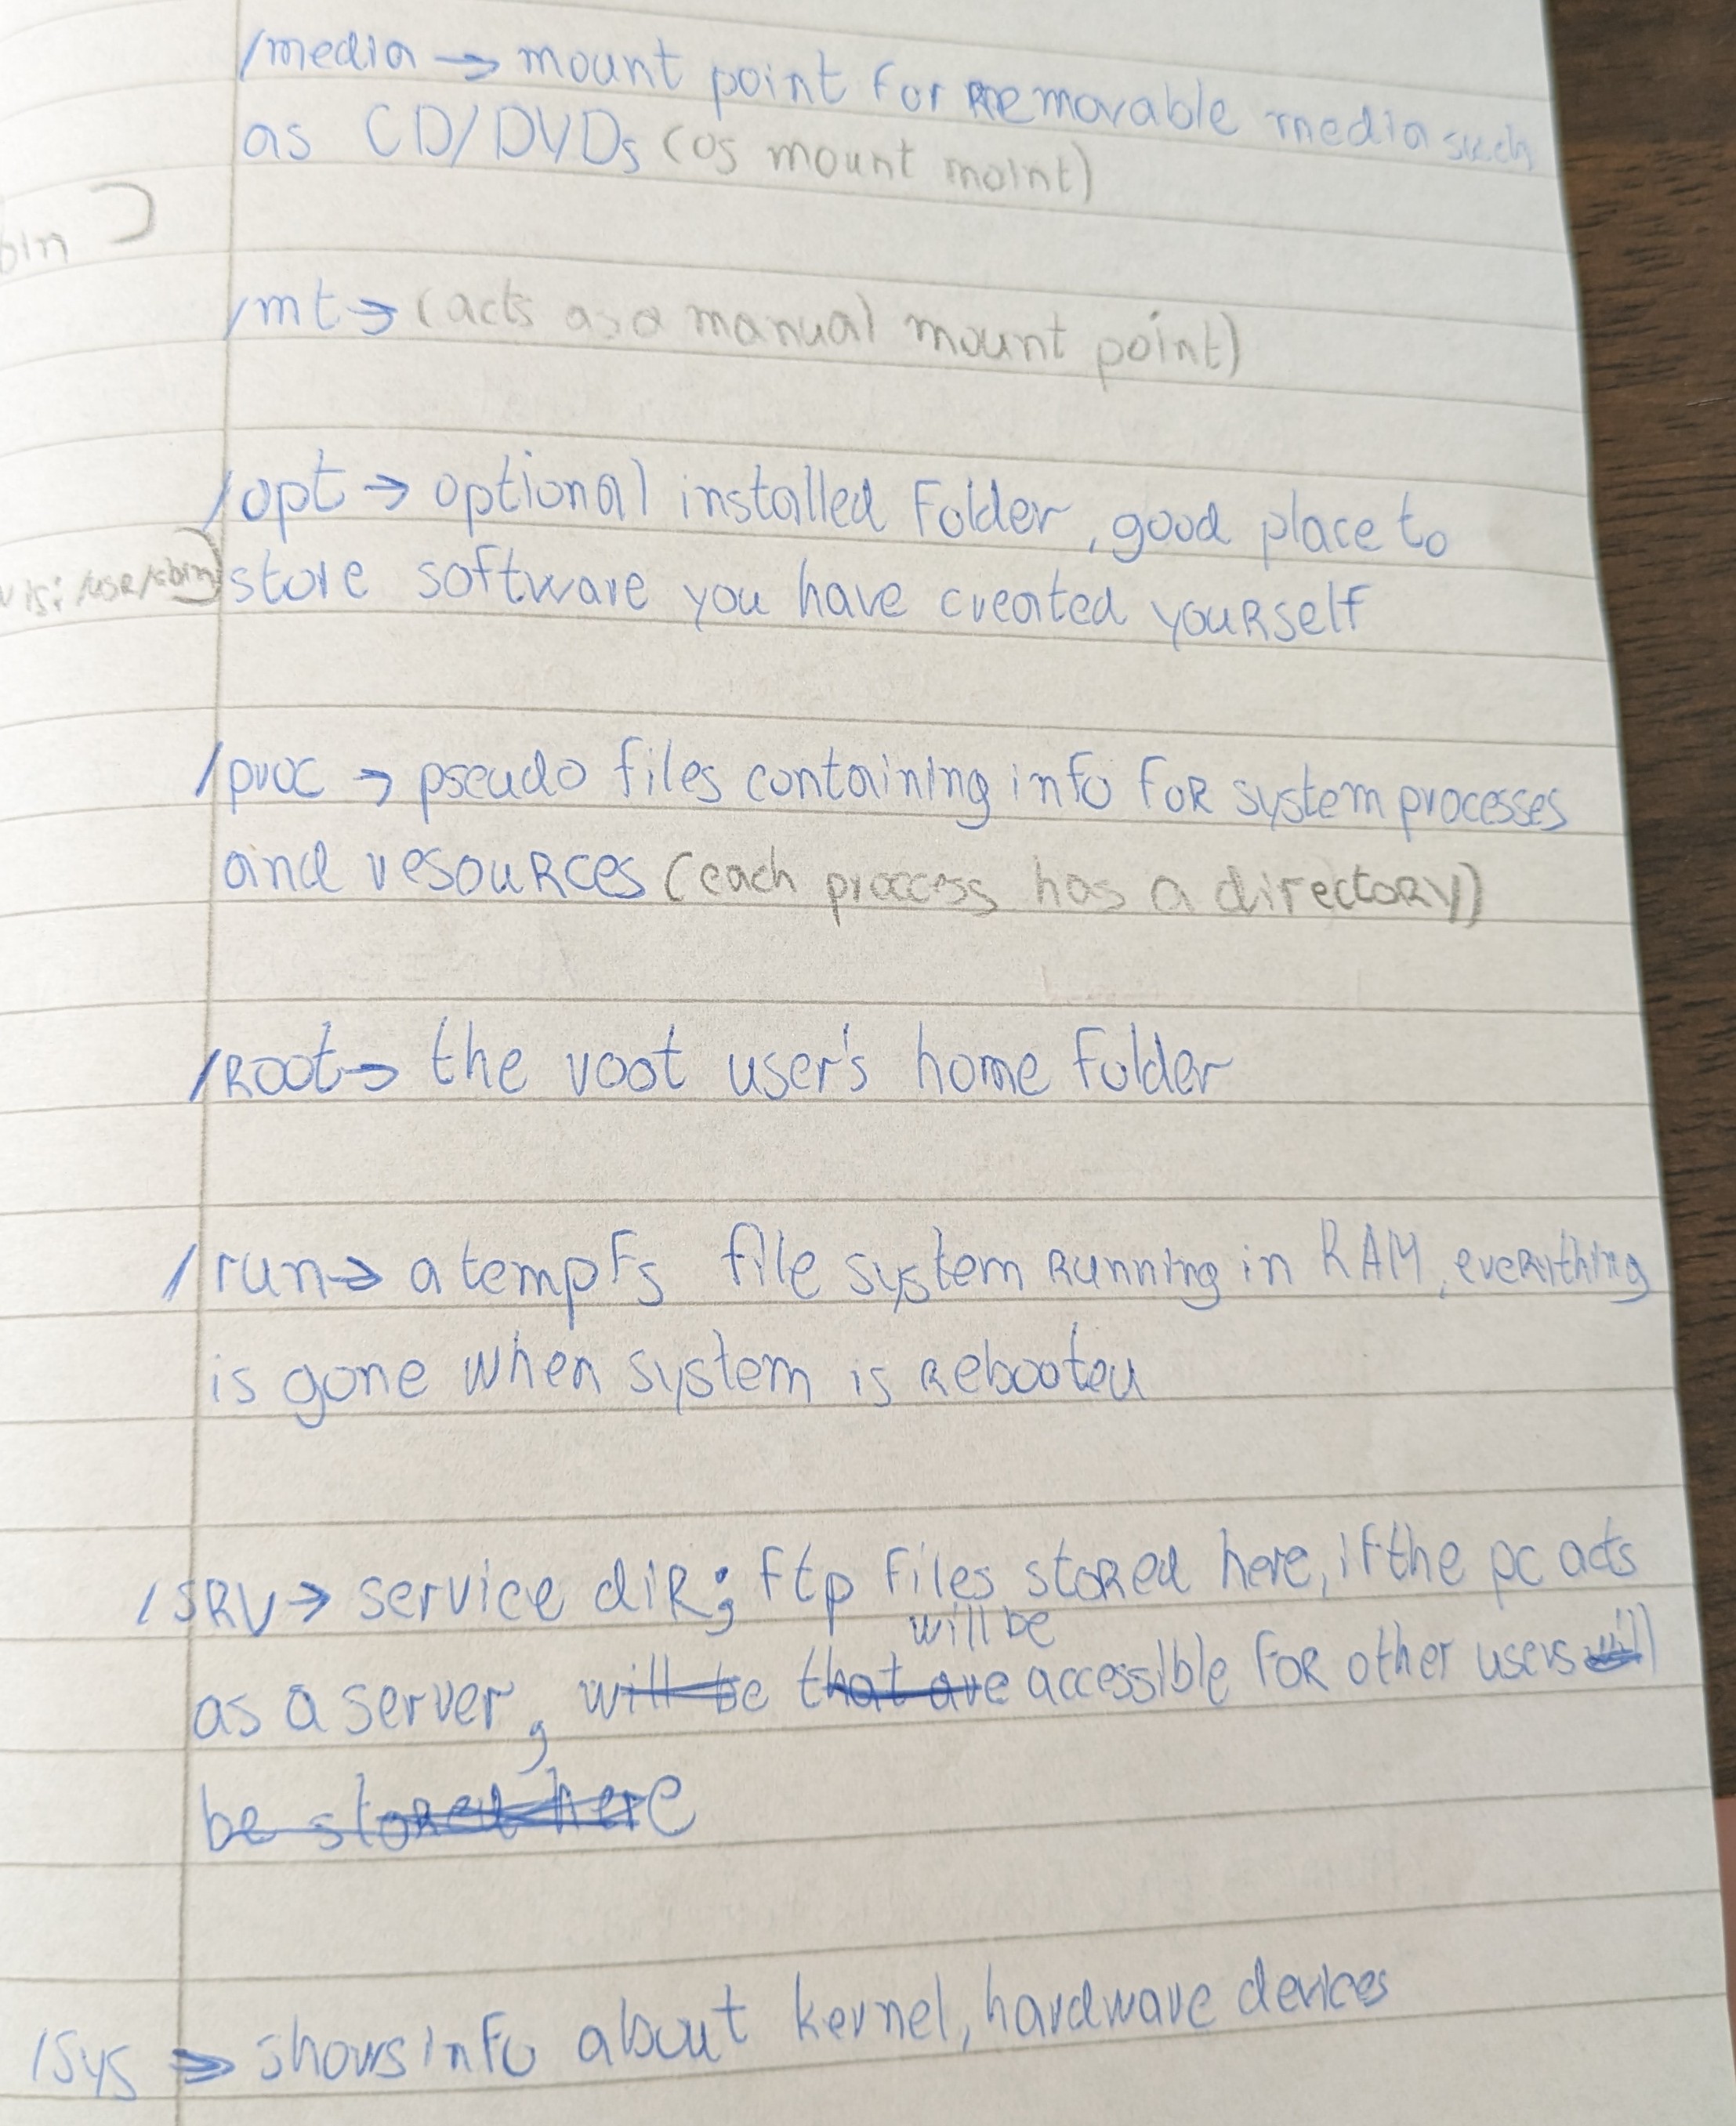 /media → mount point for removable media such
as CD/DVDs (os mount moint)
bin )
/mt → (acts as a manual mount point)
/opt → optional installed folder, good place to
store software you have created yourself
/usr/sbin)
/proc → pseudo files containing info for system processes
and resources (each proccess has a directory)
/root → the root user's home folder
/run → a tempfs file system running in RAM, everything
is gone when system is rebooted
/srv → service dir; ftp files stored here, if the pc acts
will be
as a server, ~~will be~~ ~~that are~~ accessible for other users ~~will~~
~~be stored here~~
/sys → shows info about kernel, hardware devices